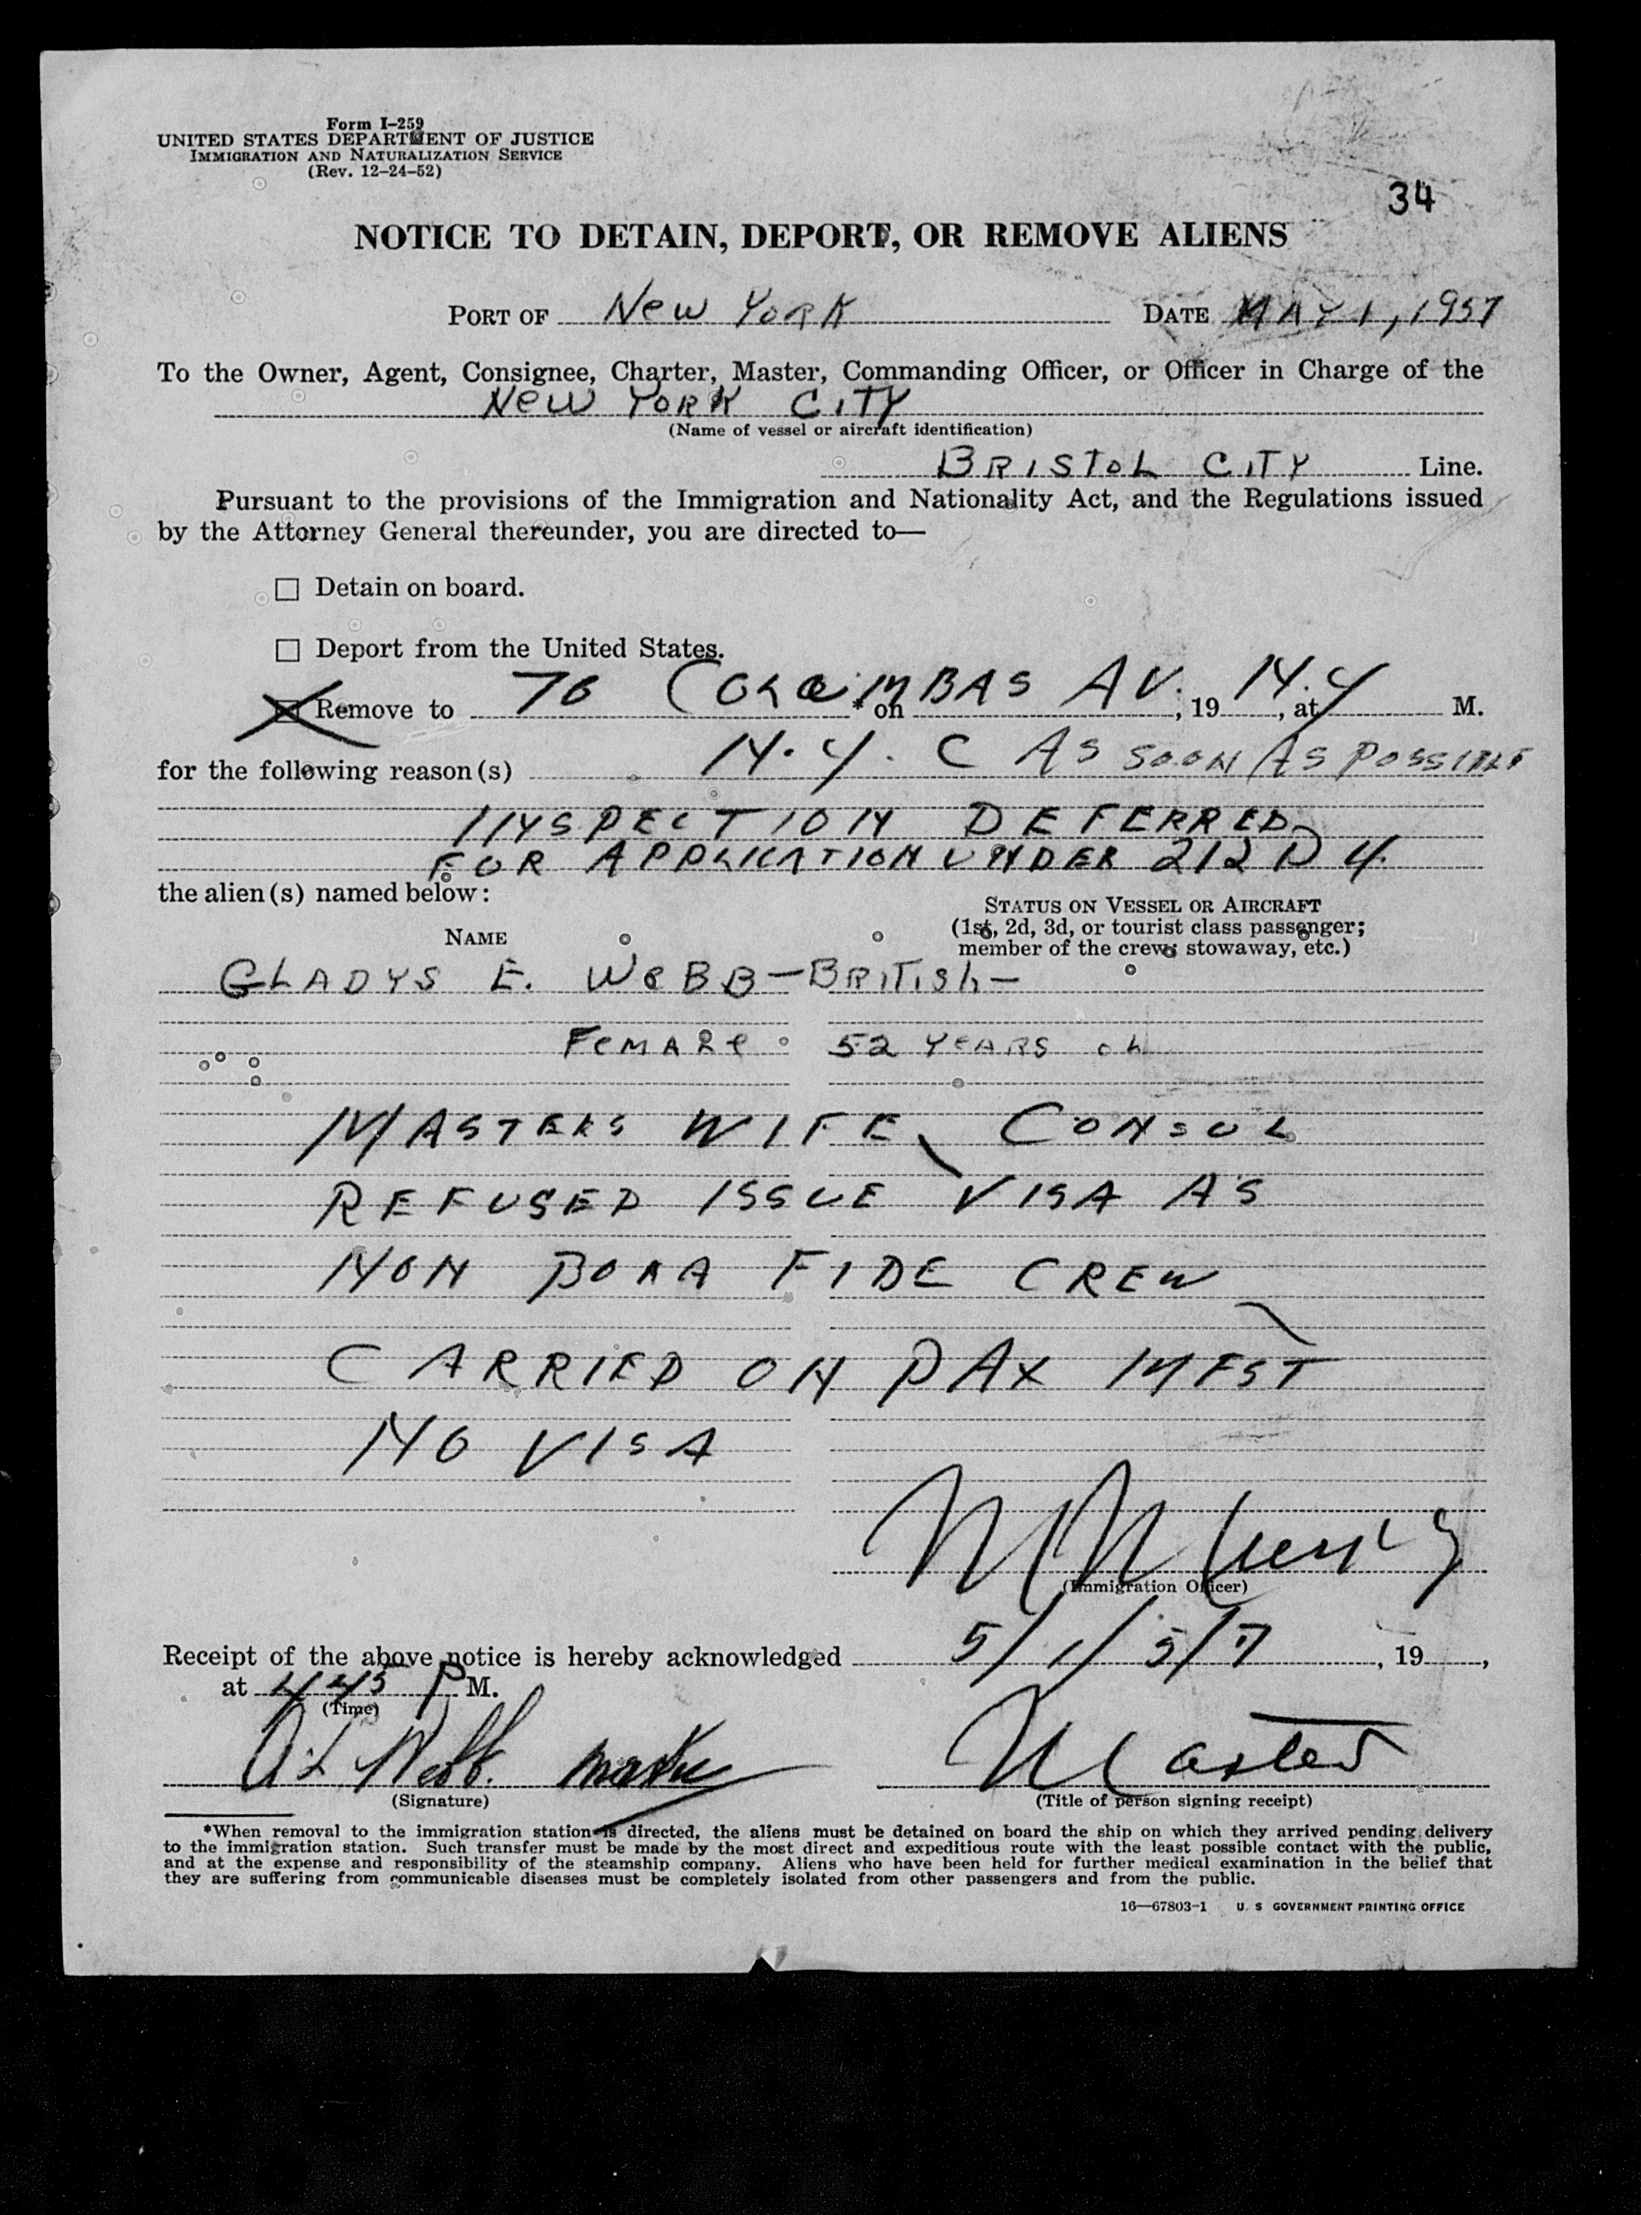 Form I–259
UNITED STATES DEPARTMENT OF JUSTICE
IMMIGRATION AND NATURALIZATION SERVICE
(Rev. 12–24–52)
34
NOTICE TO DETAIN, DEPORT, OR REMOVE ALIENS
PORT OF New YORK DATE MAY 1, 1957
To the Owner, Agent, Consignee, Charter, Master, Commanding Officer, or Officer in Charge of the
New YORK CITY
(Name of vessel or aircraft identification)
BRISTOL CITY Line.
Pursuant to the provisions of the Immigration and Nationality Act, and the Regulations issued
by the Attorney General thereunder, you are directed to—
☐ Detain on board.
☐ Deport from the United States.
☒ Remove to 70 COLUMBAS AV. * on , 19 , at N.Y M.
for the following reason(s) N.Y.C AS SOON AS POSSIBLE
INSPECTION DEFERRED
FOR APPLICATION UNDER 212 D 4.
the alien(s) named below:
NAME
STATUS ON VESSEL OR AIRCRAFT
(1st, 2d, 3d, or tourist class passenger;
member of the crew, stowaway, etc.)
GLADYS E. WeBB—BRITISh—
FeMALe 52 YeARS
MASTERS WIFE, CONSUL
REFUSED ISSUE VISA AS
NON BONA FIDE CREW,
CARRIED ON PAX MFST
NO VISA
(Immigration Officer)
Receipt of the above notice is hereby acknowledged 5/1/57 , 19 ,
at 445 P M.
(Time)
Webb. Master
Master
(Signature)
(Title of person signing receipt)
*When removal to the immigration station is directed, the aliens must be detained on board the ship on which they arrived pending delivery
to the immigration station. Such transfer must be made by the most direct and expeditious route with the least possible contact with the public,
and at the expense and responsibility of the steamship company. Aliens who have been held for further medical examination in the belief that
they are suffering from communicable diseases must be completely isolated from other passengers and from the public.
16—67803-1 U. S GOVERNMENT PRINTING OFFICE